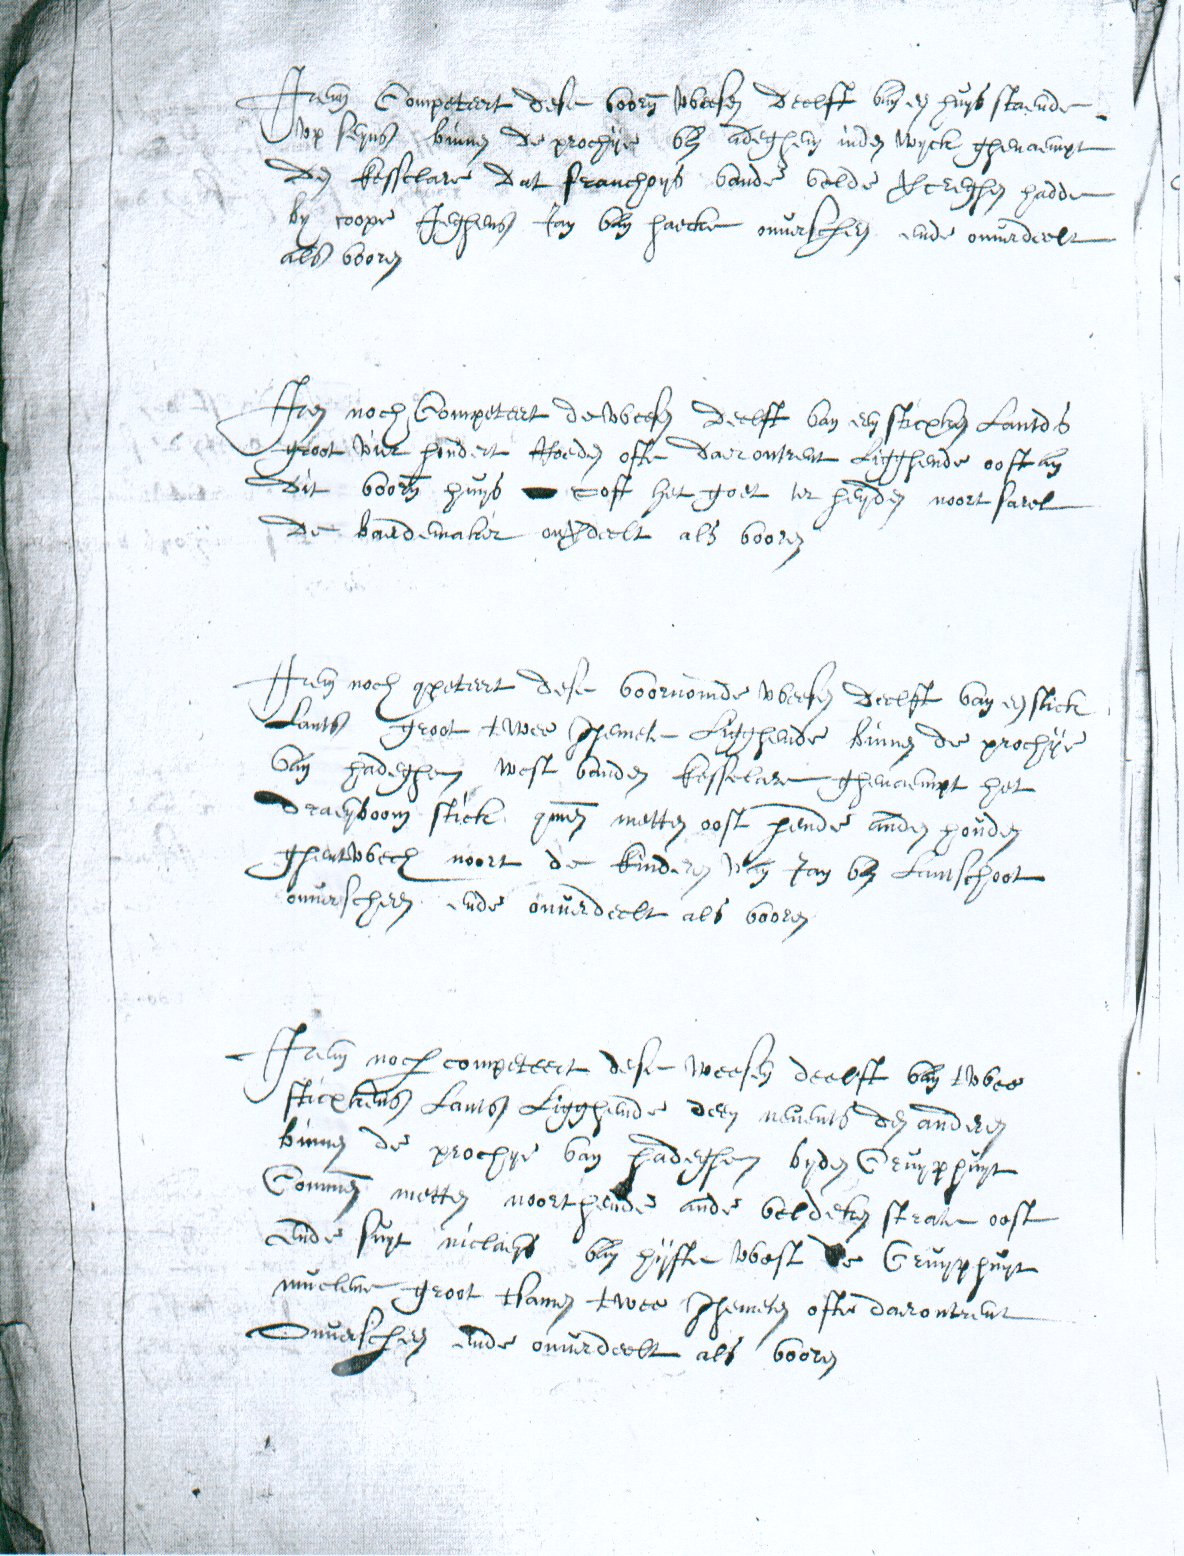 Item Competeert dese voorn weesen deelft van een huys staende
up seyns binnen de prochije van adeghem inden wyck ghenaempt
den kesselare dat franchoys vande velde vercreghen hadde
by coope Jeghens Jan van haecke onverscheen ende onverdeelt
als vooren
Item noch Competeert de weesen deelft van een sticxken Lants
groot vier hondert Roeden ofte daerontrent Ligghende oost an
dit voorn huys oost het goet ter heyden noort karel
de baerdemaker onverdeelt als vooren
Item noch competeert dese voornomde weesen deelft van een stick
Lants groot twee ghemete Ligghende binnen de prochije
van hadeghem west vanden kesselare ghenaempt het
draeyboom stick commen metten oost hende anden houden
ghentweech noort de kinderen van Jan van Lantschoot
onverscheen ende onverdeelt als vooren
Item noch competeert dese weesen deelft van twee
sticxkens Lants Ligghende deen nevens den anderen
binnen de prochye van hadeghem byden Cruyphuyt
Commen metten noorthende ande veldeken strate oost
ende suyt niclays van hyfte west de Cruyphuyt
muelene groot tsamen twee ghemeten ofte daerontrent
Onverscheen ende onverdeelt als vooren